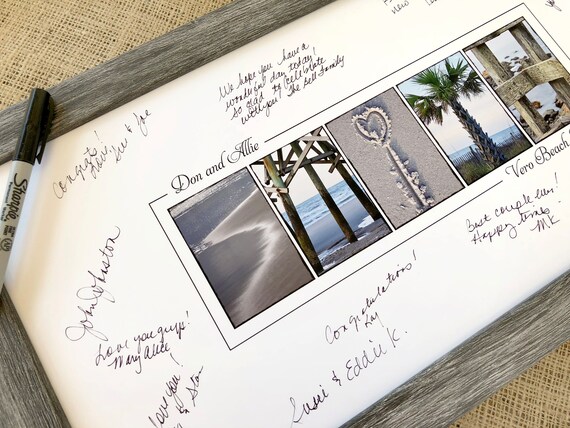 We hope you have a
wonderful day today!
So glad to celebrate
with you! The Self Family
Congrats!
Love,
Sue & Joe
Sharpie
Don and Allie
Vero Beach
Best couple ever!
Happy times
MK
John Johnston
Love you guys!
Mary Alice
Congratulations!
Kay
love you!
& Stan
Susie & Eddie K.